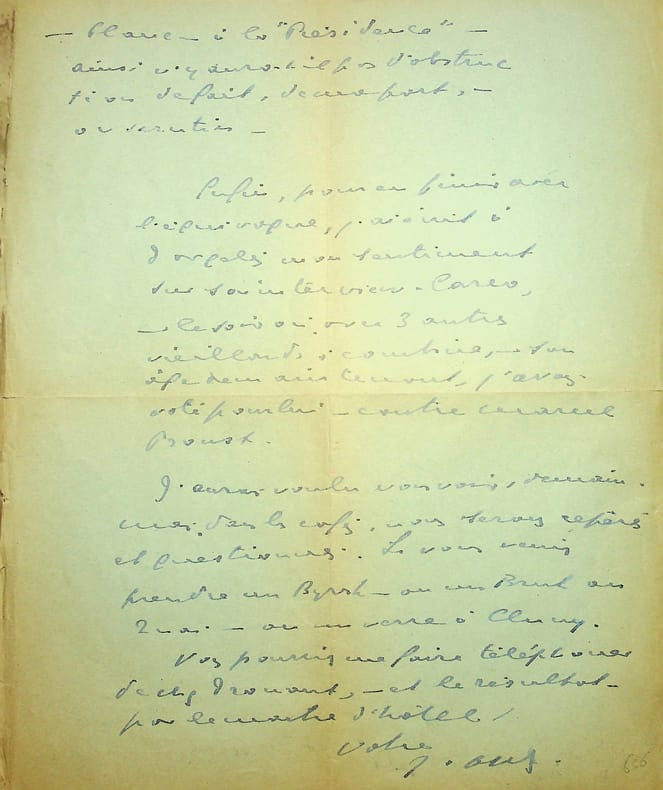 — Planc — à la "Présidence" —
ainsi n'y aura-t-il pas d'obstruc
tion de fait, de ma part, —
ou scrutin —
Enfin, pour en finir avec
l'équivoque, j'ai écrit à
Dorgelès mon sentiment
sur son interview - Carco,
— le soir où, avec 3 autres
vieillards à combine, — son
âge de maintenant, j'avais
voté pour lui — contre Marcel
Proust.
J'aurais voulu vous voir, demain.
mais, dans le café, nous serons repérés
et questionnés. Si vous venez
prendre un Byrrh — ou un Brut au
— ou un verre à Cluny.
Vous pourriez me faire téléphoner
de chez Drouant, — et le résultat —
par le maître d'hôtel /
votre
656